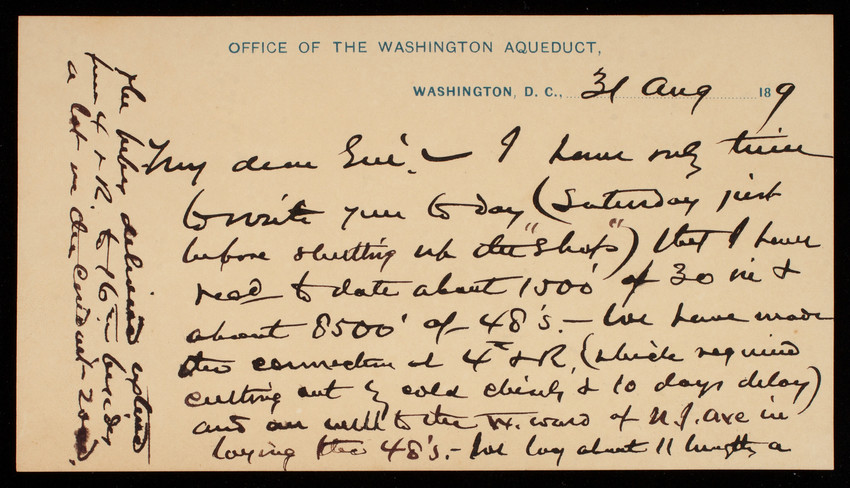 OFFICE OF THE WASHINGTON AQUEDUCT,
WASHINGTON, D. C., 31 Aug 189
My dear Genl. – I have only time
to write you to day (Saturday just
before shutting up the "Shop") that I have
read to date about 1500' of 30 in &
about 8500' of 48's. – We have made
the connection at 4th & R, (which required
cutting out by cold chisels & 10 days delay)
and are well to the W. ward of N.J. Ave in
laying the 48's. – We lay about 11 lengths a
The delivered
from 4 & R to 16th besides
a lot in the Conduit